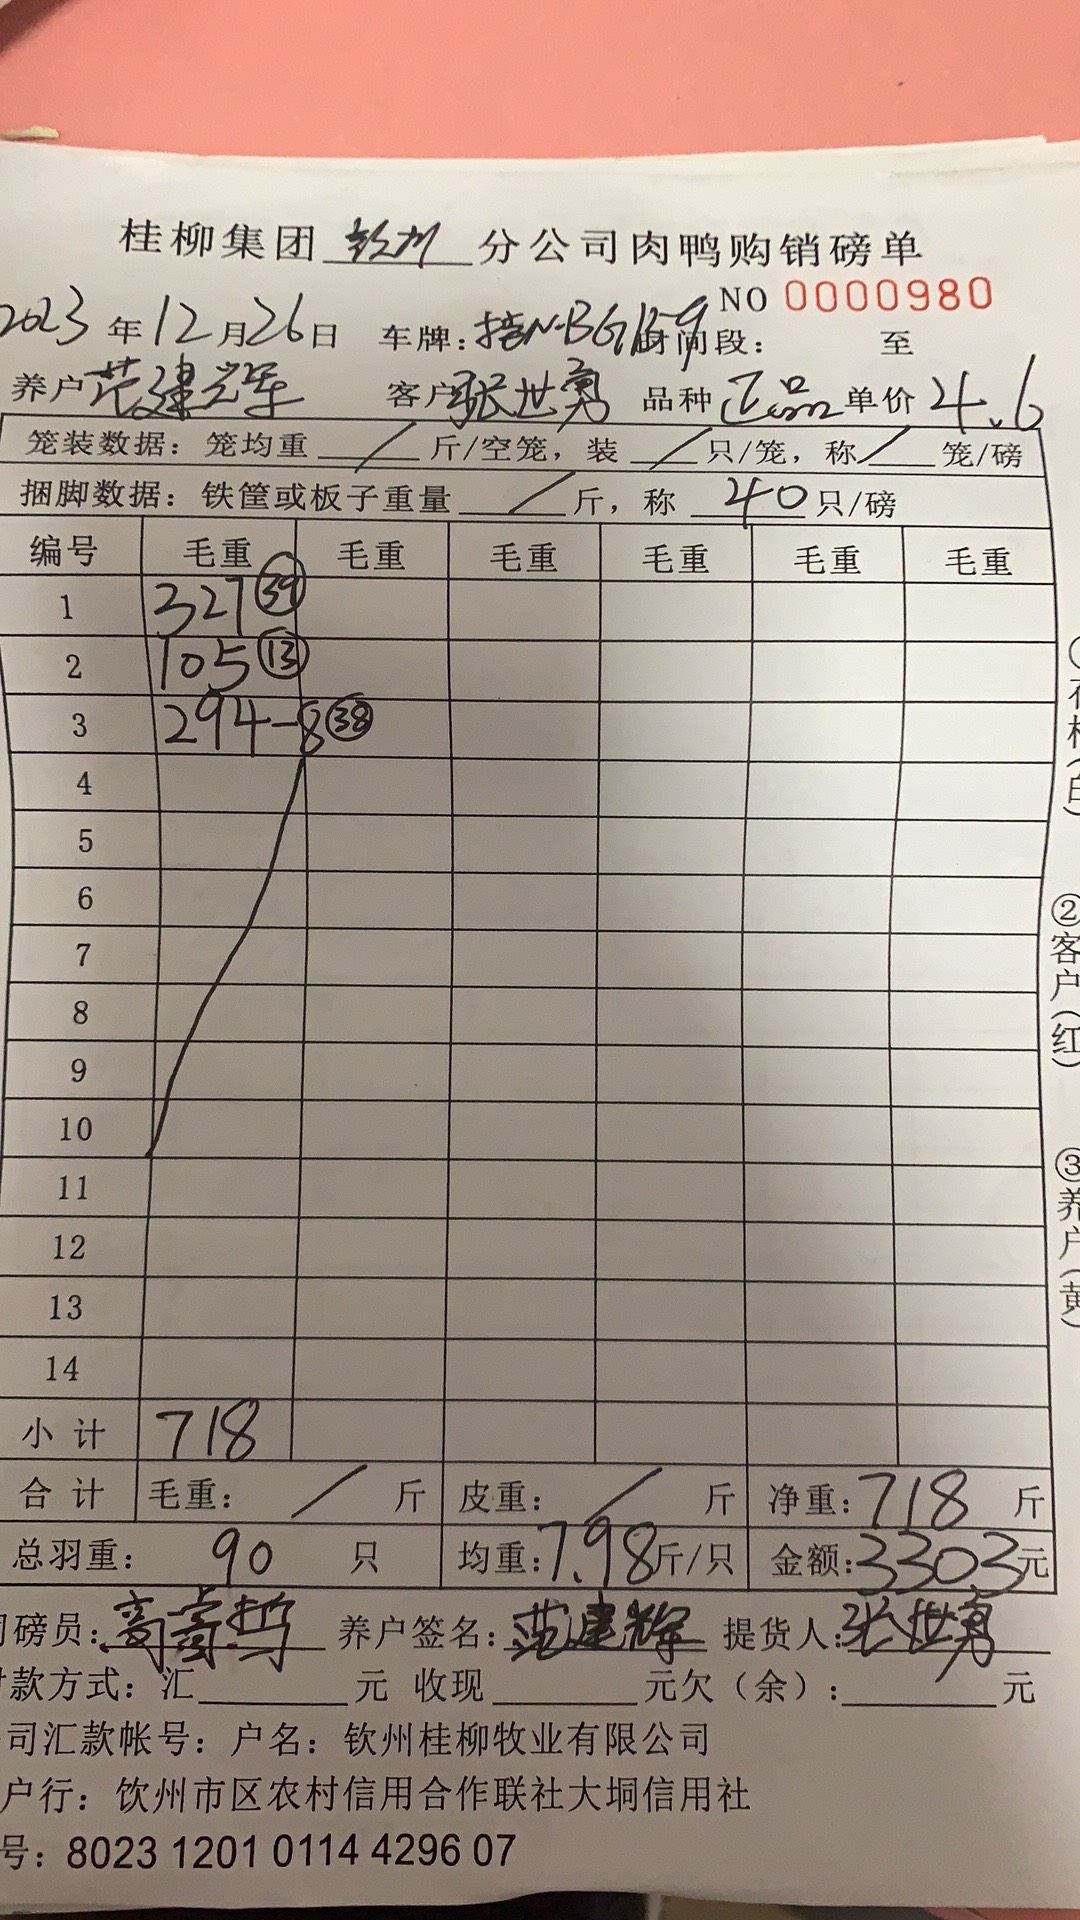 桂柳集团 钦州 分公司肉鸭购销磅单
NO 0000980
2023年12月26日 车牌: 时间段: 至
养户 范建辉 客户 张世勇 品种 正品 单价 4.6
笼装数据：笼均重 / 斤/空笼，装 / 只/笼，称 / 笼/磅
捆脚数据：铁筐或板子重量 / 斤，称 40 只/磅
编号 毛重 毛重 毛重 毛重 毛重 毛重
1 327 39
2 105 13
3 294-8 38
4
5
6
7
8
9
10
11
12
13
14
小计 718
合计 毛重: / 斤 皮重: / 斤 净重: 718 斤
总羽重: 90 只 均重: 7.98 斤/只 金额: 3303 元
磅员: 养户签名: 范建辉 提货人: 张世勇
款方式: 汇 元 收现 元欠（余）: 元
司汇款帐号：户名：钦州桂柳牧业有限公司
户行：钦州市区农村信用合作联社大垌信用社
号：8023 1201 0114 4296 07
②客户(红)
③养户(黄)